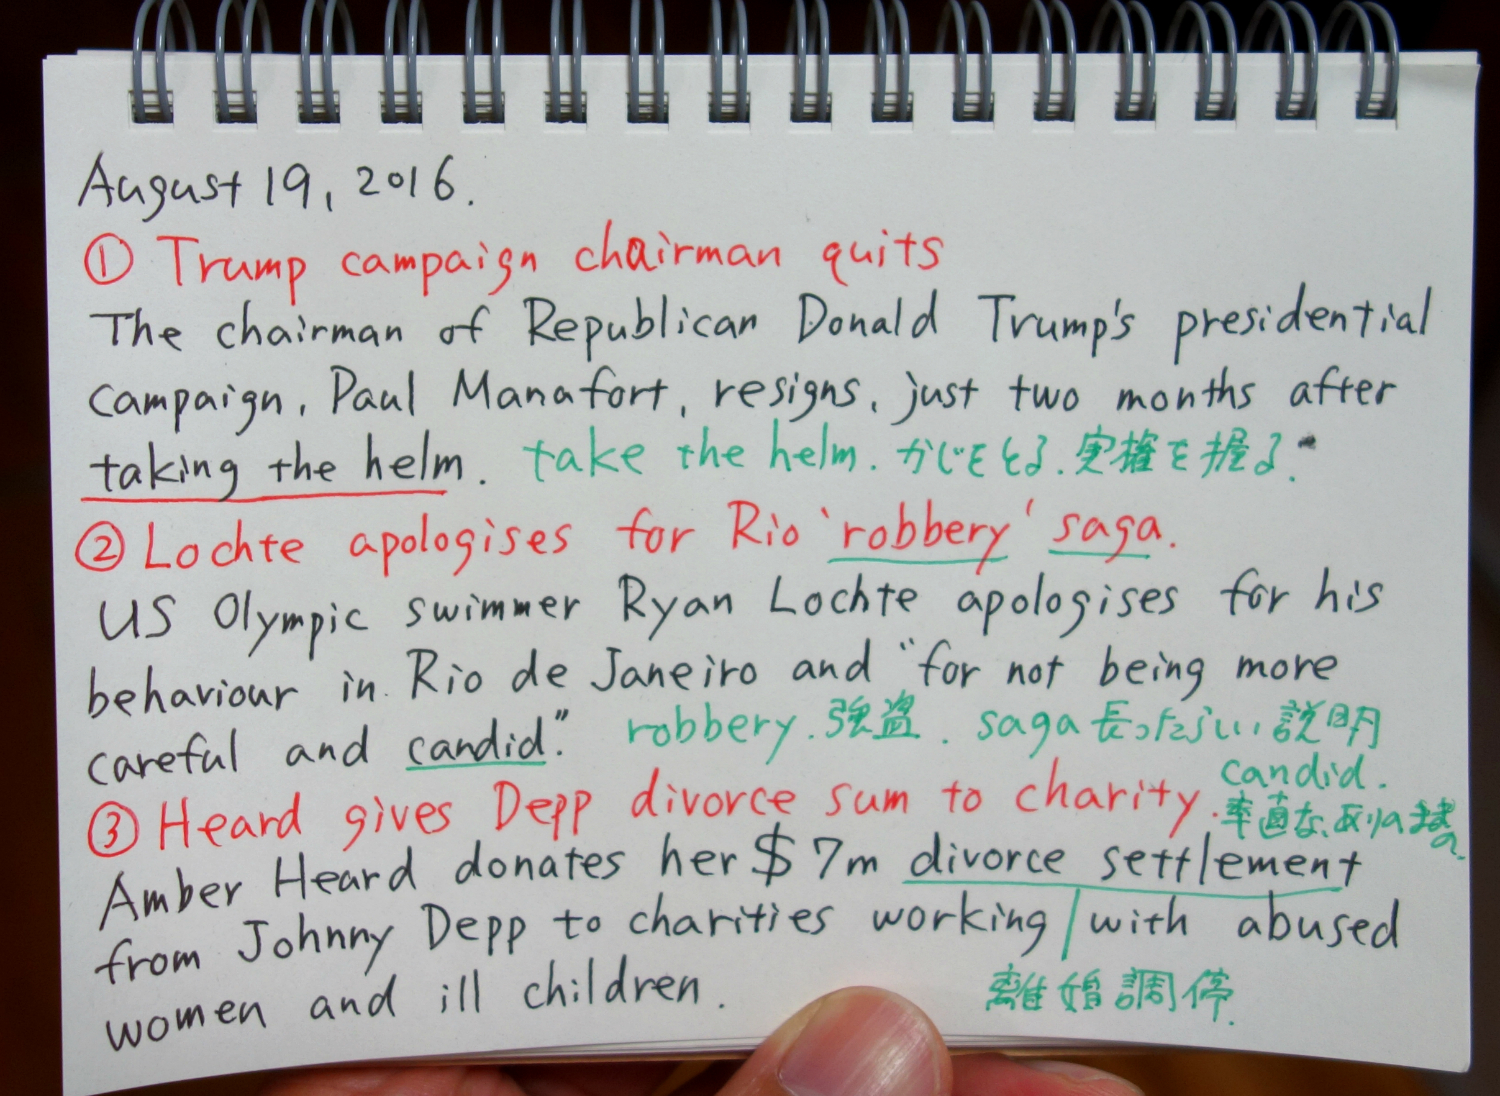 August 19, 2016.
① Trump campaign chairman quits
The chairman of Republican Donald Trump's presidential
campaign, Paul Manafort, resigns, just two months after
taking the helm. take the helm. かじをとる. 実権を握る.
② Lochte apologises for Rio 'robbery' saga.
US Olympic swimmer Ryan Lochte apologises for his
behaviour in Rio de Janeiro and "for not being more
careful and candid." robbery. 強盗. saga 長ったらしい説明
candid.
③ Heard gives Depp divorce sum to charity. 率直な、ありのままの.
Amber Heard donates her $7m divorce settlement
from Johnny Depp to charities working / with abused
women and ill children. 離婚調停.